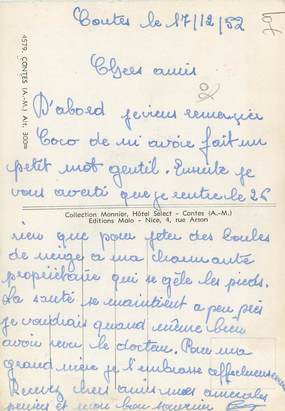 Contes le 17/12/52
lot
Chers amis
D'abord je viens remercier
Coco de m'avoir fait un
petit mot gentil. Ensuite je
vous averti que je rentre le 26
4579. CONTES (A.-M.) Alt. 300m
Collection Monnier, Hôtel Select - Contes (A.-M.)
Editions Malo - Nice, 4, rue Arson
rien que pour jeter des boules
de neige a ma charmante
propriétaire qui se gèle les pieds.
La santé se maintient a peu près
je voudrais quand même bien
avoir vu le docteur. Pour ma
grand mère je l'embrasse affectueusement
Recevez chers amis mes amicales
pensées et mon bon souvenir